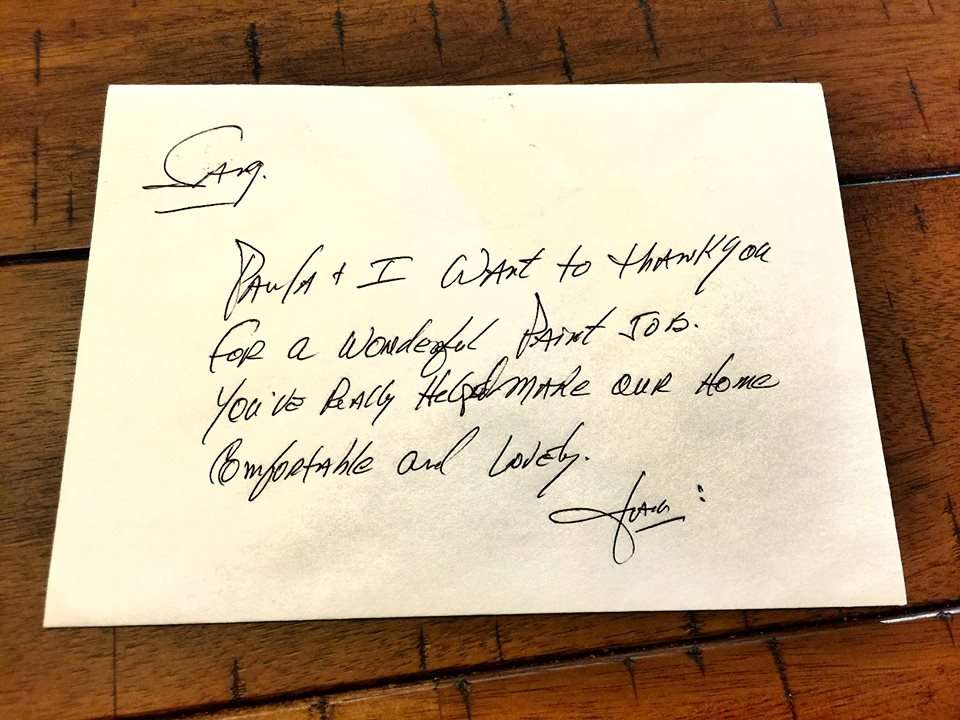 Paula + I want to thank you
for a wonderful Paint Job.
You've Really Helped make our Home
Comfortable and Lovely.